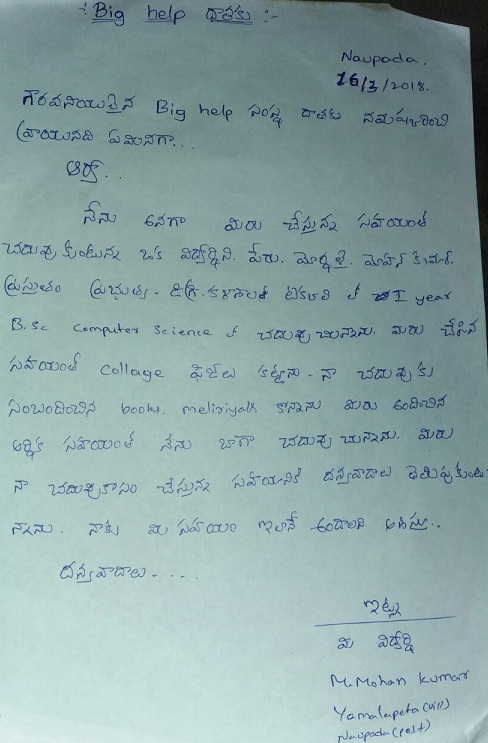 :- Big help దాతకు :-
Naupada,
16/3/2018.
గౌరవనియులైన Big help సంస్థ దాతకు నమష్కరించి
వ్రాయునది ఏమనగా...
ఆర్య..
నేను అనగా మిరు చేస్తున్న సహయంతో
చదువు కుంటున్న ఒక విద్యార్థిని. పేరు. మోహన్ కుమార్.
ప్రస్తుతం ప్రభుత్వ. డిగ్రి. కళాశాల టెకలి లో I year
B.Sc Computer Science లో చదువు చున్నాను. మిరు చేసిన
సహయంతో Collage ఫిజులు కట్టాను. నా చదువుకు
సంబందించిన books, meliriyals కొన్నాను మిరు అందించిన
ఆర్థిక సహయంతో నేను బాగా చదువు చున్నాను. మిరు
నా చదువుకోసం చేస్తున్న సహయానికి దన్యవాదాలు తెలుపుకుంటు
న్నాను. నాకు మి సహయం ఇలానే ఉండాలని ఆశిస్తు..
దన్యవాదాలు. . . .
ఇట్లు
మి విద్యార్థి
M. Mohan Kumar
Yamalapeta (vill)
Naupada (post)